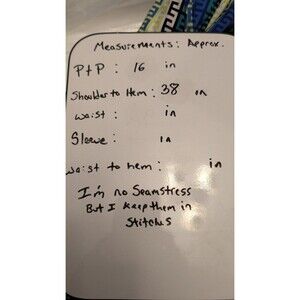 Measurements: Approx.
PtP: 16 in
Shoulder to Hem: 38 in
Waist: in
Sleeve: in
Waist to hem: in
I'm no Seamstress
But I keep them in
Stitches